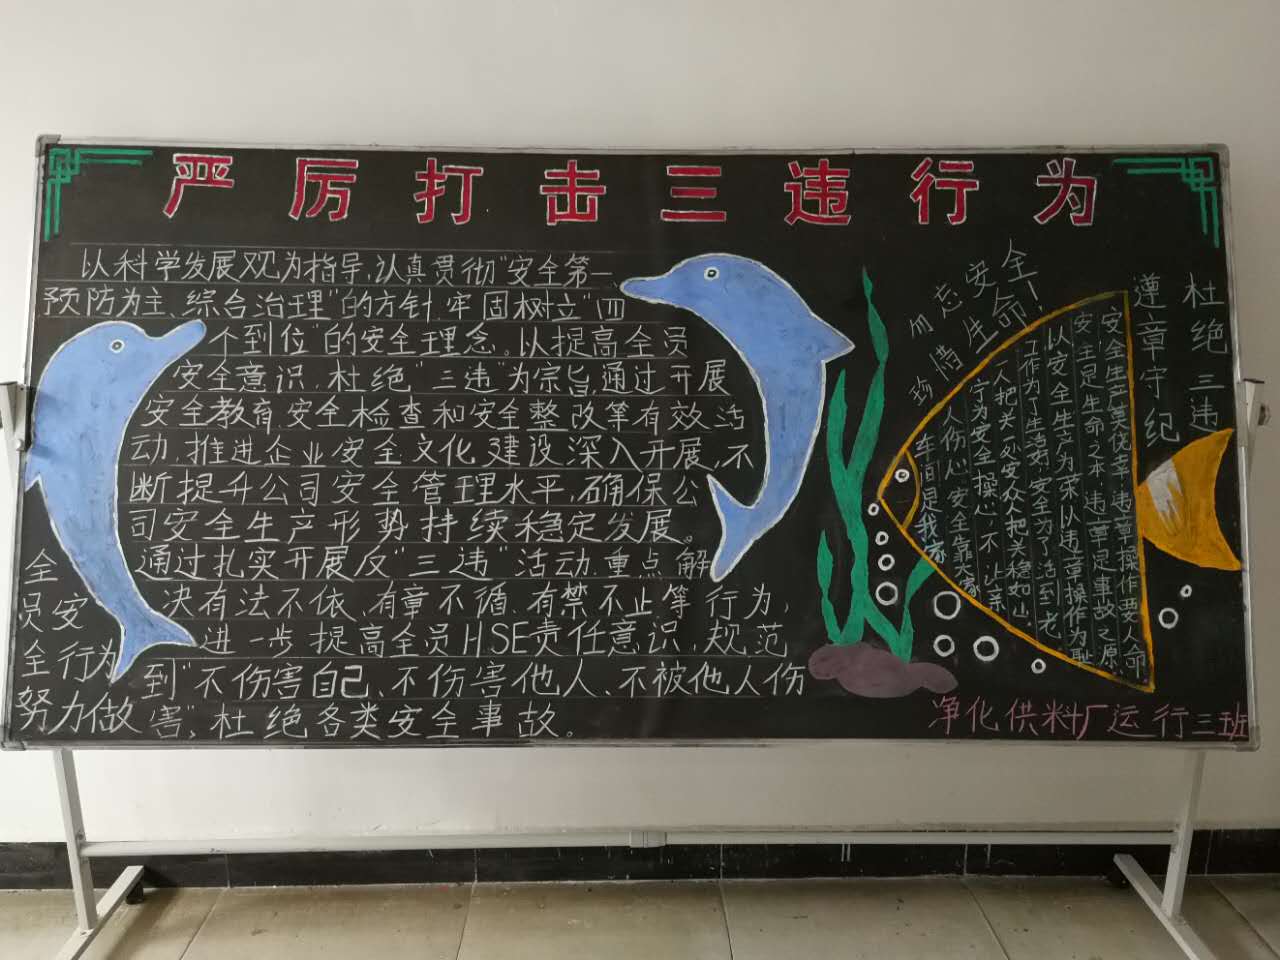 严厉打击三违行为
以科学发展观为指导,认真贯彻"安全第一
预防为主、综合治理"的方针,牢固树立"四
个到位"的安全理念。以提高全员
安全意识,杜绝"三违"为宗旨,通过开展
安全教育,安全检查和安全整改等有效活
动,推进企业安全文化建设深入开展,不
断提升公司安全管理水平,确保公
司安全生产形势持续稳定发展。
通过扎实开展反"三违"活动,重点解
决有法不依、有章不循、有禁不止等行为,
进一步提高全员HSE责任意识,规范
全员安
全行为
努力做
到"不伤害自己、不伤害他人、不被他人伤
害",杜绝各类安全事故。
勿忘安全
珍惜生命!
杜绝三违
遵章守纪
安全生产莫侥幸 违章操作要人命
安全是生命之本,违章是事故之源
以安全生产为荣,以违章操作为耻
工作为了生活好,安全为了活到老
一人把关一处安,众人把关稳如山
宁为安全操心,不让亲
人伤心 安全靠大家
车间是我家
净化供料厂运行三班